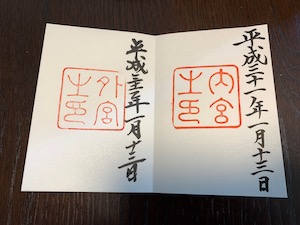 平成三十一年一月十三日
内宮
之印
平成三十一年一月十三日
外宮
之印